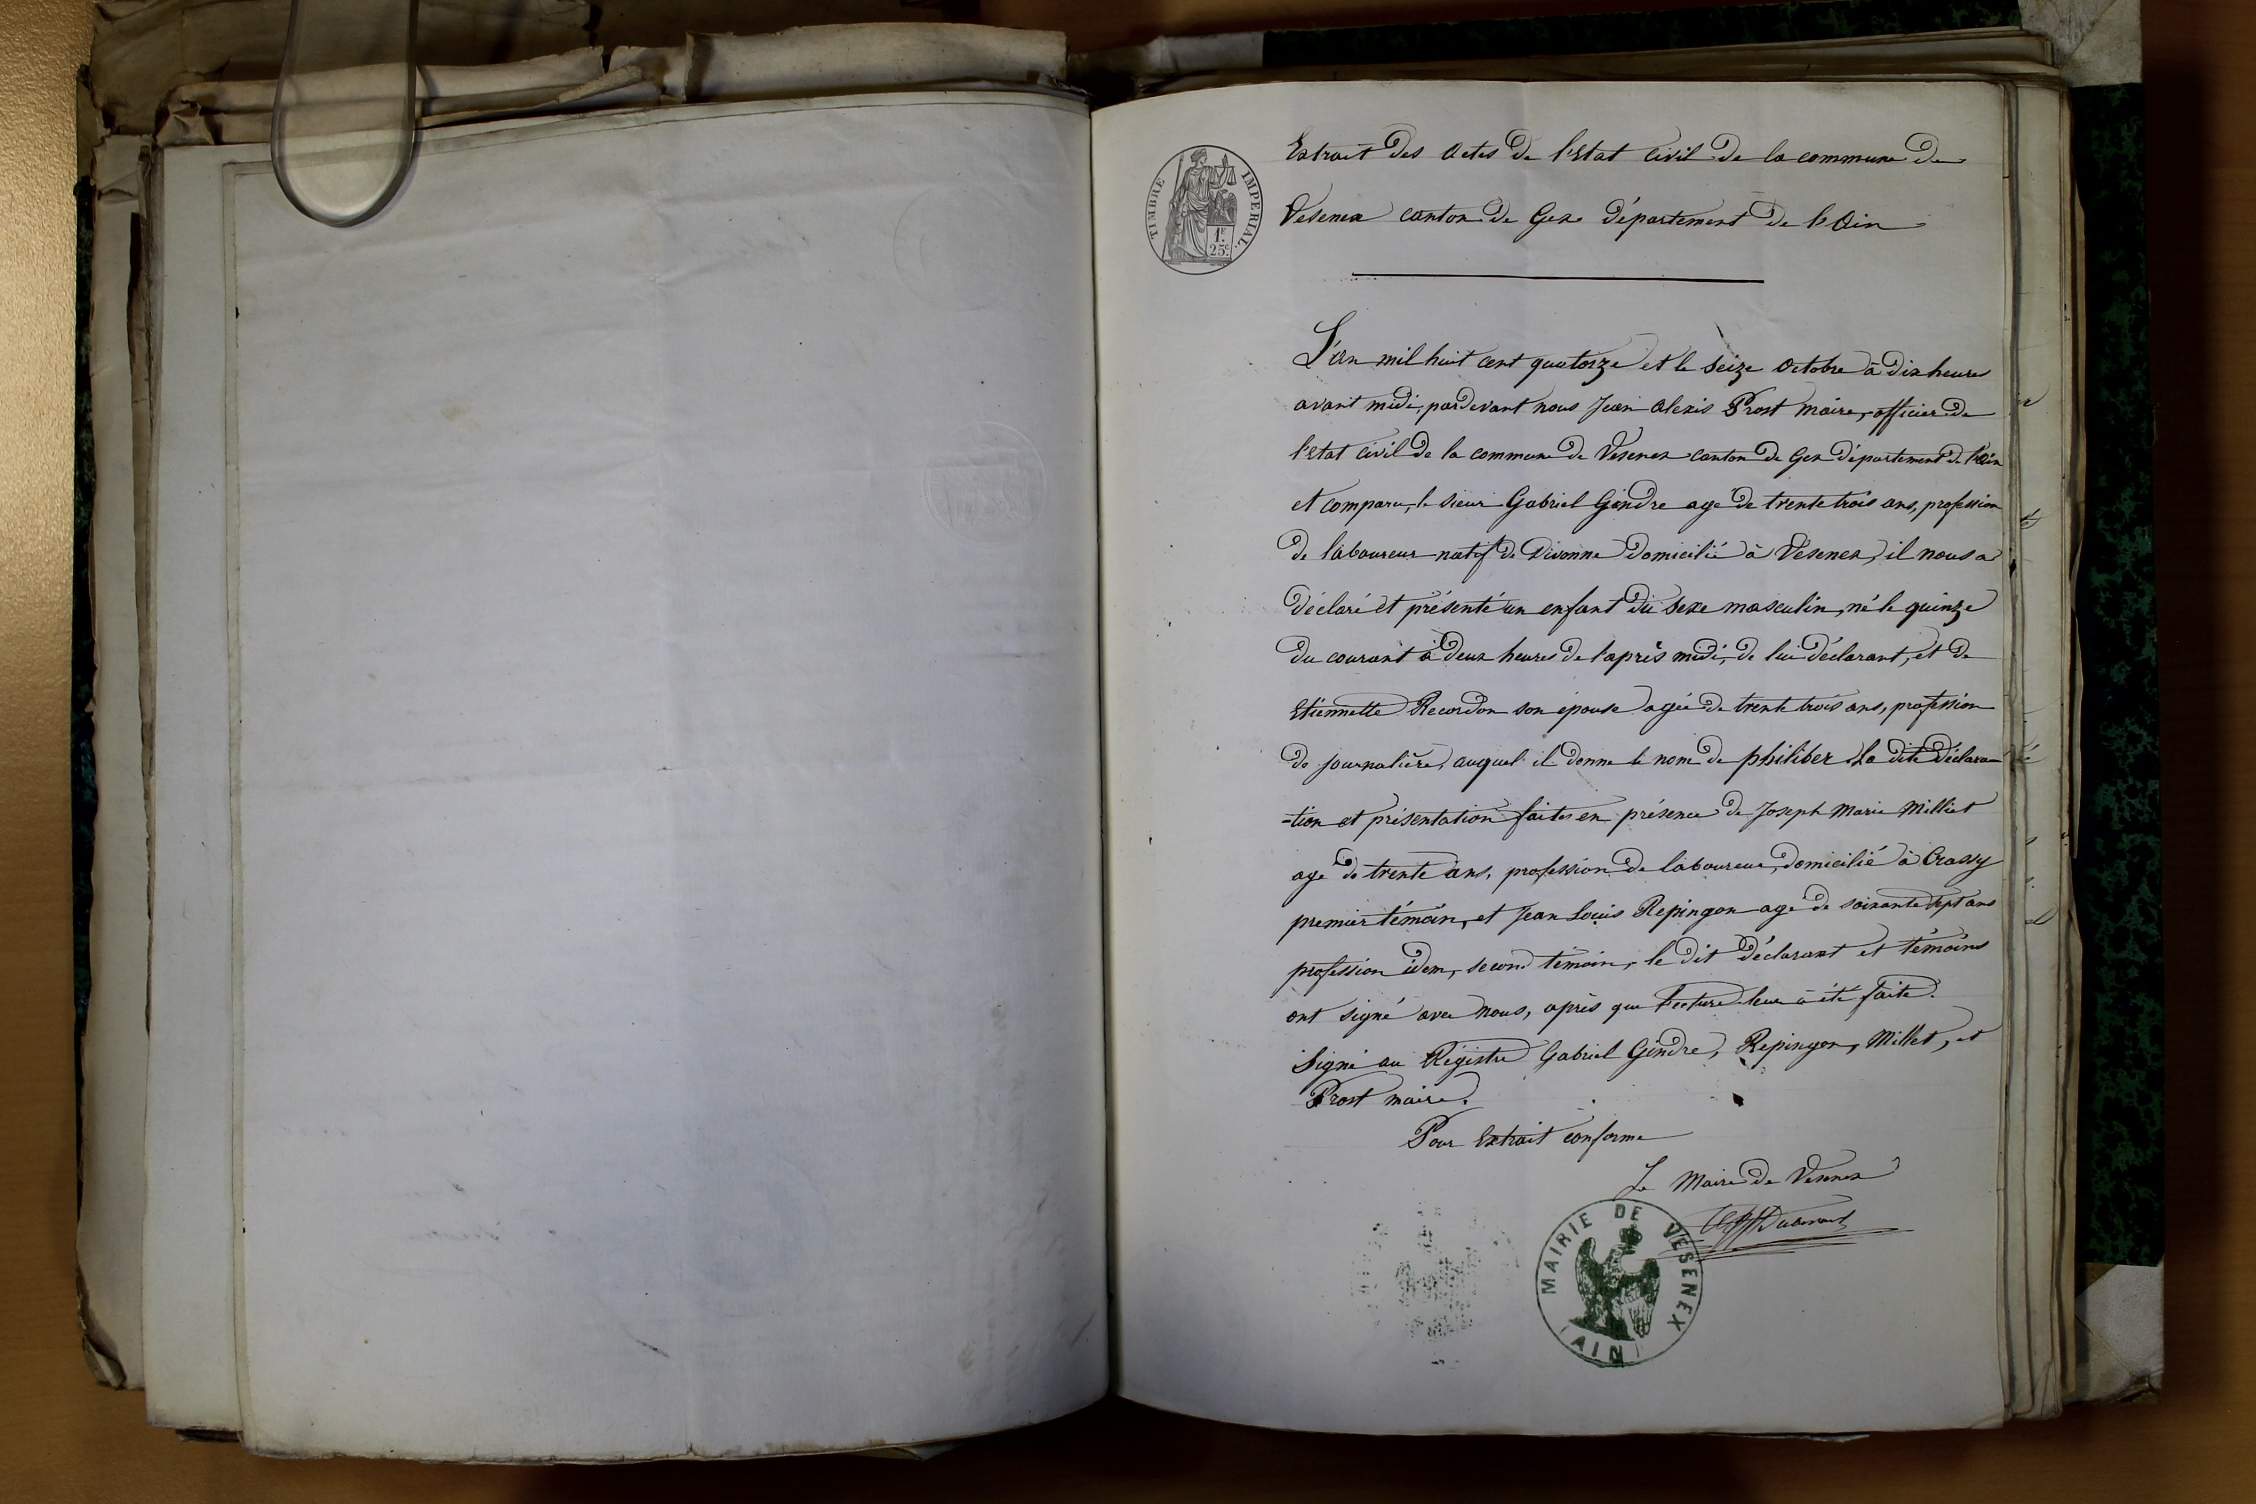 Extrait des actes de l'Etat civil de la commune de
Vesenex canton de Gex département de l'Ain
TIMBRE IMPERIAL.
1F.
25c.
L'an mil huit cent quatorze et le seize octobre à dix heures
avant midi, pardevant nous Jean Alexis Prost Maire, officier de
l'Etat civil de la commune de Vesenex canton de Gex département de l'Ain
et comparu, le sieur Gabriel Gindre age de trente trois ans, profession
de laboureur natif de Divonne domicilié à Vesenex, il nous a
déclaré et présenté un enfant du sexe masculin, né le quinze
du courant à deux heures de l'après midi, de lui déclarant, et de
Etiennette Recordon son épouse agée de trente trois ans, profession
de journalière, auquel il donne le nom de philiber La dite déclara-
-tion et présentation faites en présence de Joseph Marie Milliet
age de trente ans, profession de laboureur, domicilié à Crassy
premier témoin, et Jean Louis Repingon age de soixante sept ans
profession idem, second témoin, le dit déclarant et témoins
ont signé avec nous, après que lecture leur à été faite.
Signé au Régistre Gabriel Gindre, Repingon, Millet, et
Prost maire.
Pour Extrait conforme
Le Maire de Vesenex
MAIRIE DE VESENEX
(AIN)